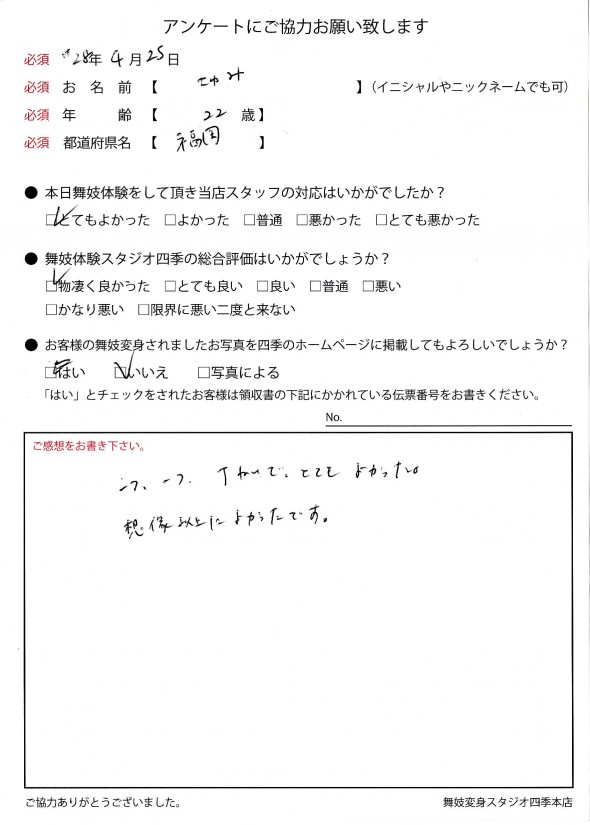 アンケートにご協力お願い致します
必須 H28年 4月 25日
必須 お名前【 】(イニシャルやニックネームでも可)
必須 年齢【 22歳】
必須 都道府県名【 福岡 】
● 本日舞妓体験をして頂き当店スタッフの対応はいかがでしたか?
□とてもよかった □よかった □普通 □悪かった □とても悪かった
● 舞妓体験スタジオ四季の総合評価はいかがでしょうか?
□物凄く良かった □とても良い □良い □普通 □悪い
□かなり悪い □限界に悪い二度と来ない
● お客様の舞妓変身されましたお写真を四季のホームページに掲載してもよろしいでしょうか?
□はい □いいえ □写真による
「はい」とチェックをされたお客様は領収書の下記にかかれている伝票番号をお書きください。
No.
ご感想をお書き下さい。
一つ、一つ、ていねいで、とてもよかった。
想像以上によかったです。
ご協力ありがとうございました。
舞妓変身スタジオ四季本店